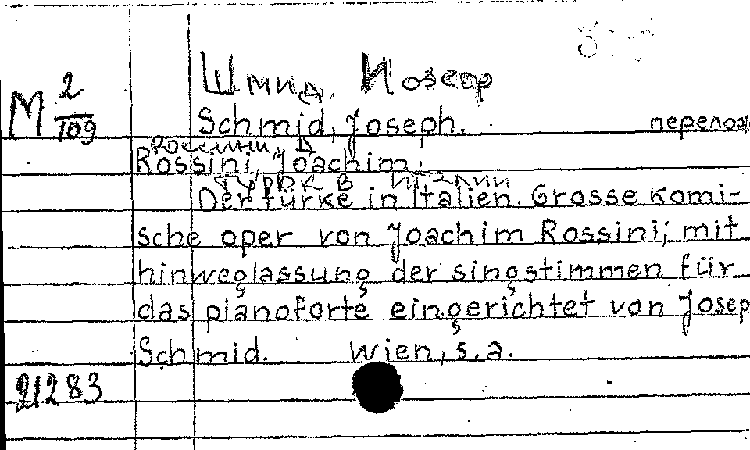 Шмид, Иозеф
М 2/109
Schmid, Joseph. перелож
Россини, Д
Rossini, Joachim.
Турок в Италии
Der türke in Italien. Grosse komi-
sche oper von Joachim Rossini; mit
hinweglassung der singstimmen für
das pianoforte eingerichtet von Josep
Schmid. Wien, s.a.
21283